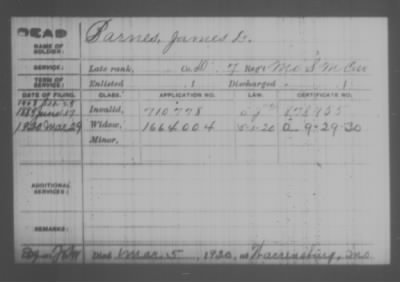 DEAD
NAME OF SOLDIER: Barnes, James L.
SERVICE: Late rank, Co. D 7 Reg't Mo. S. M. Cav
TERM OF SERVICE: Enlisted , 1 Discharged , 1
DATE OF FILING. CLASS. APPLICATION NO. LAW. CERTIFICATE NO.
Invalid, 710778
1920 Mar 29 Widow, 1664004 5-1-20 9-29-20
Minor,
ADDITIONAL SERVICES:
REMARKS:
Died Mar. 5, 1920, at Warrensburg, Mo.